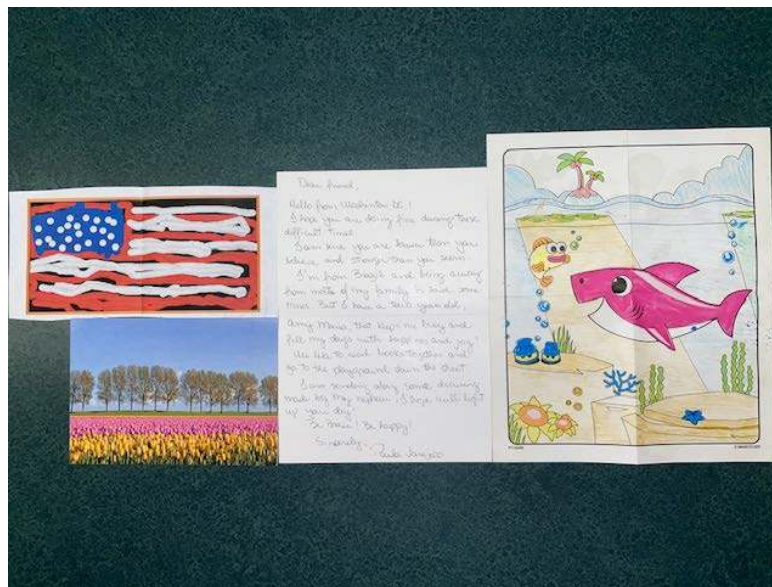 Dear friend,
Hello from Washington DC!
I hope you are doing fine during these
difficult times
I am sure you are braver than you
believe, and stronger than you seem
I'm from Brazil and being away
from most of my family is hard some
times. But I have a two years old,
Maria, that keeps me busy and
fill my days with happiness and joy!
We like to read books together and
go to the playground down the street
I am sending along some drawing
made by my nephew. I hope it will light
up your day!
Be brave! Be happy!
Sincerely,